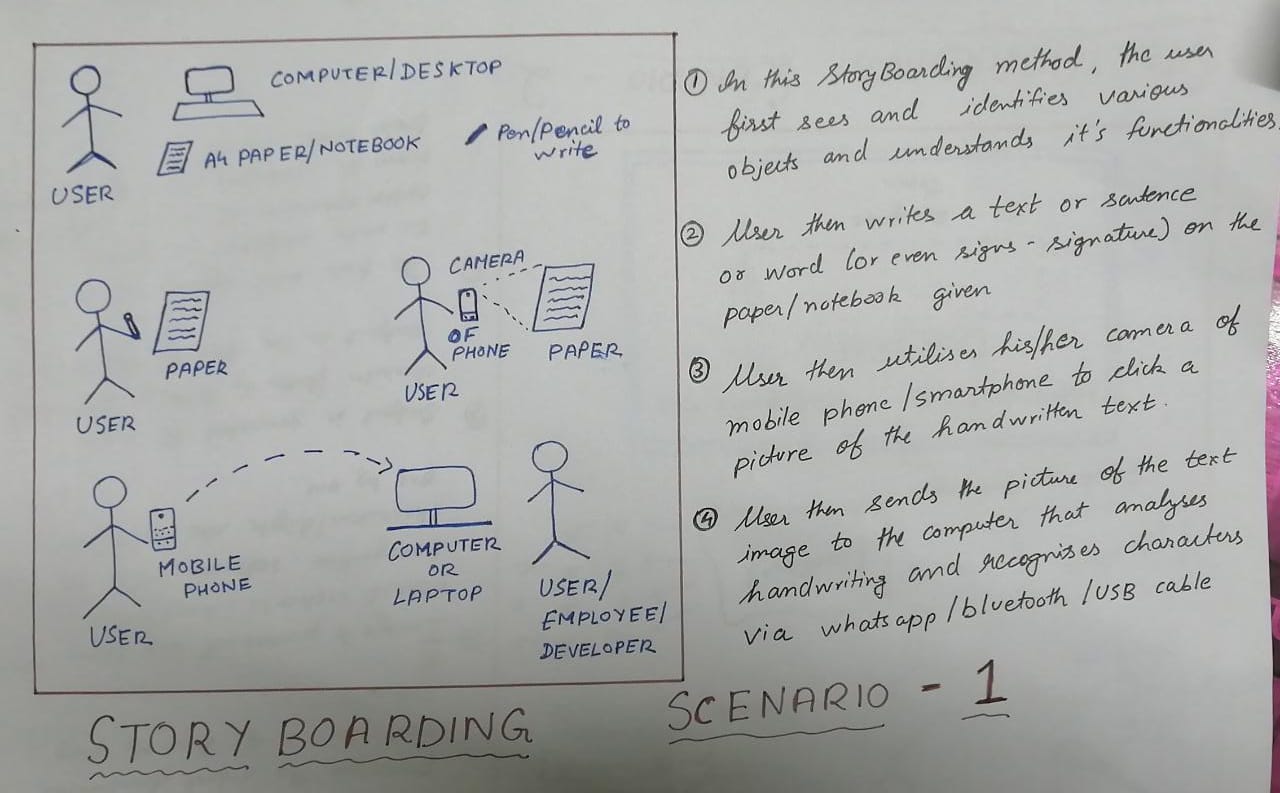 COMPUTER/DESKTOP
A4 PAPER/NOTEBOOK
Pen/Pencil to
write
USER
CAMERA
OF
PHONE
PAPER
USER
PAPER
USER
MOBILE
PHONE
USER
COMPUTER
OR
LAPTOP
USER/
EMPLOYEE/
DEVELOPER
① In this StoryBoarding method, the user
first sees and identifies various
objects and understands it's functionalities
② User then writes a text or sentence
or word (or even signs - signature) on the
paper/notebook given
③ User then utilises his/her camera of
mobile phone/smartphone to click a
picture of the handwritten text.
④ User then sends the picture of the text
image to the computer that analyses
handwriting and recognises characters
via whatsapp/bluetooth/USB cable
STORY BOARDING
SCENARIO - 1